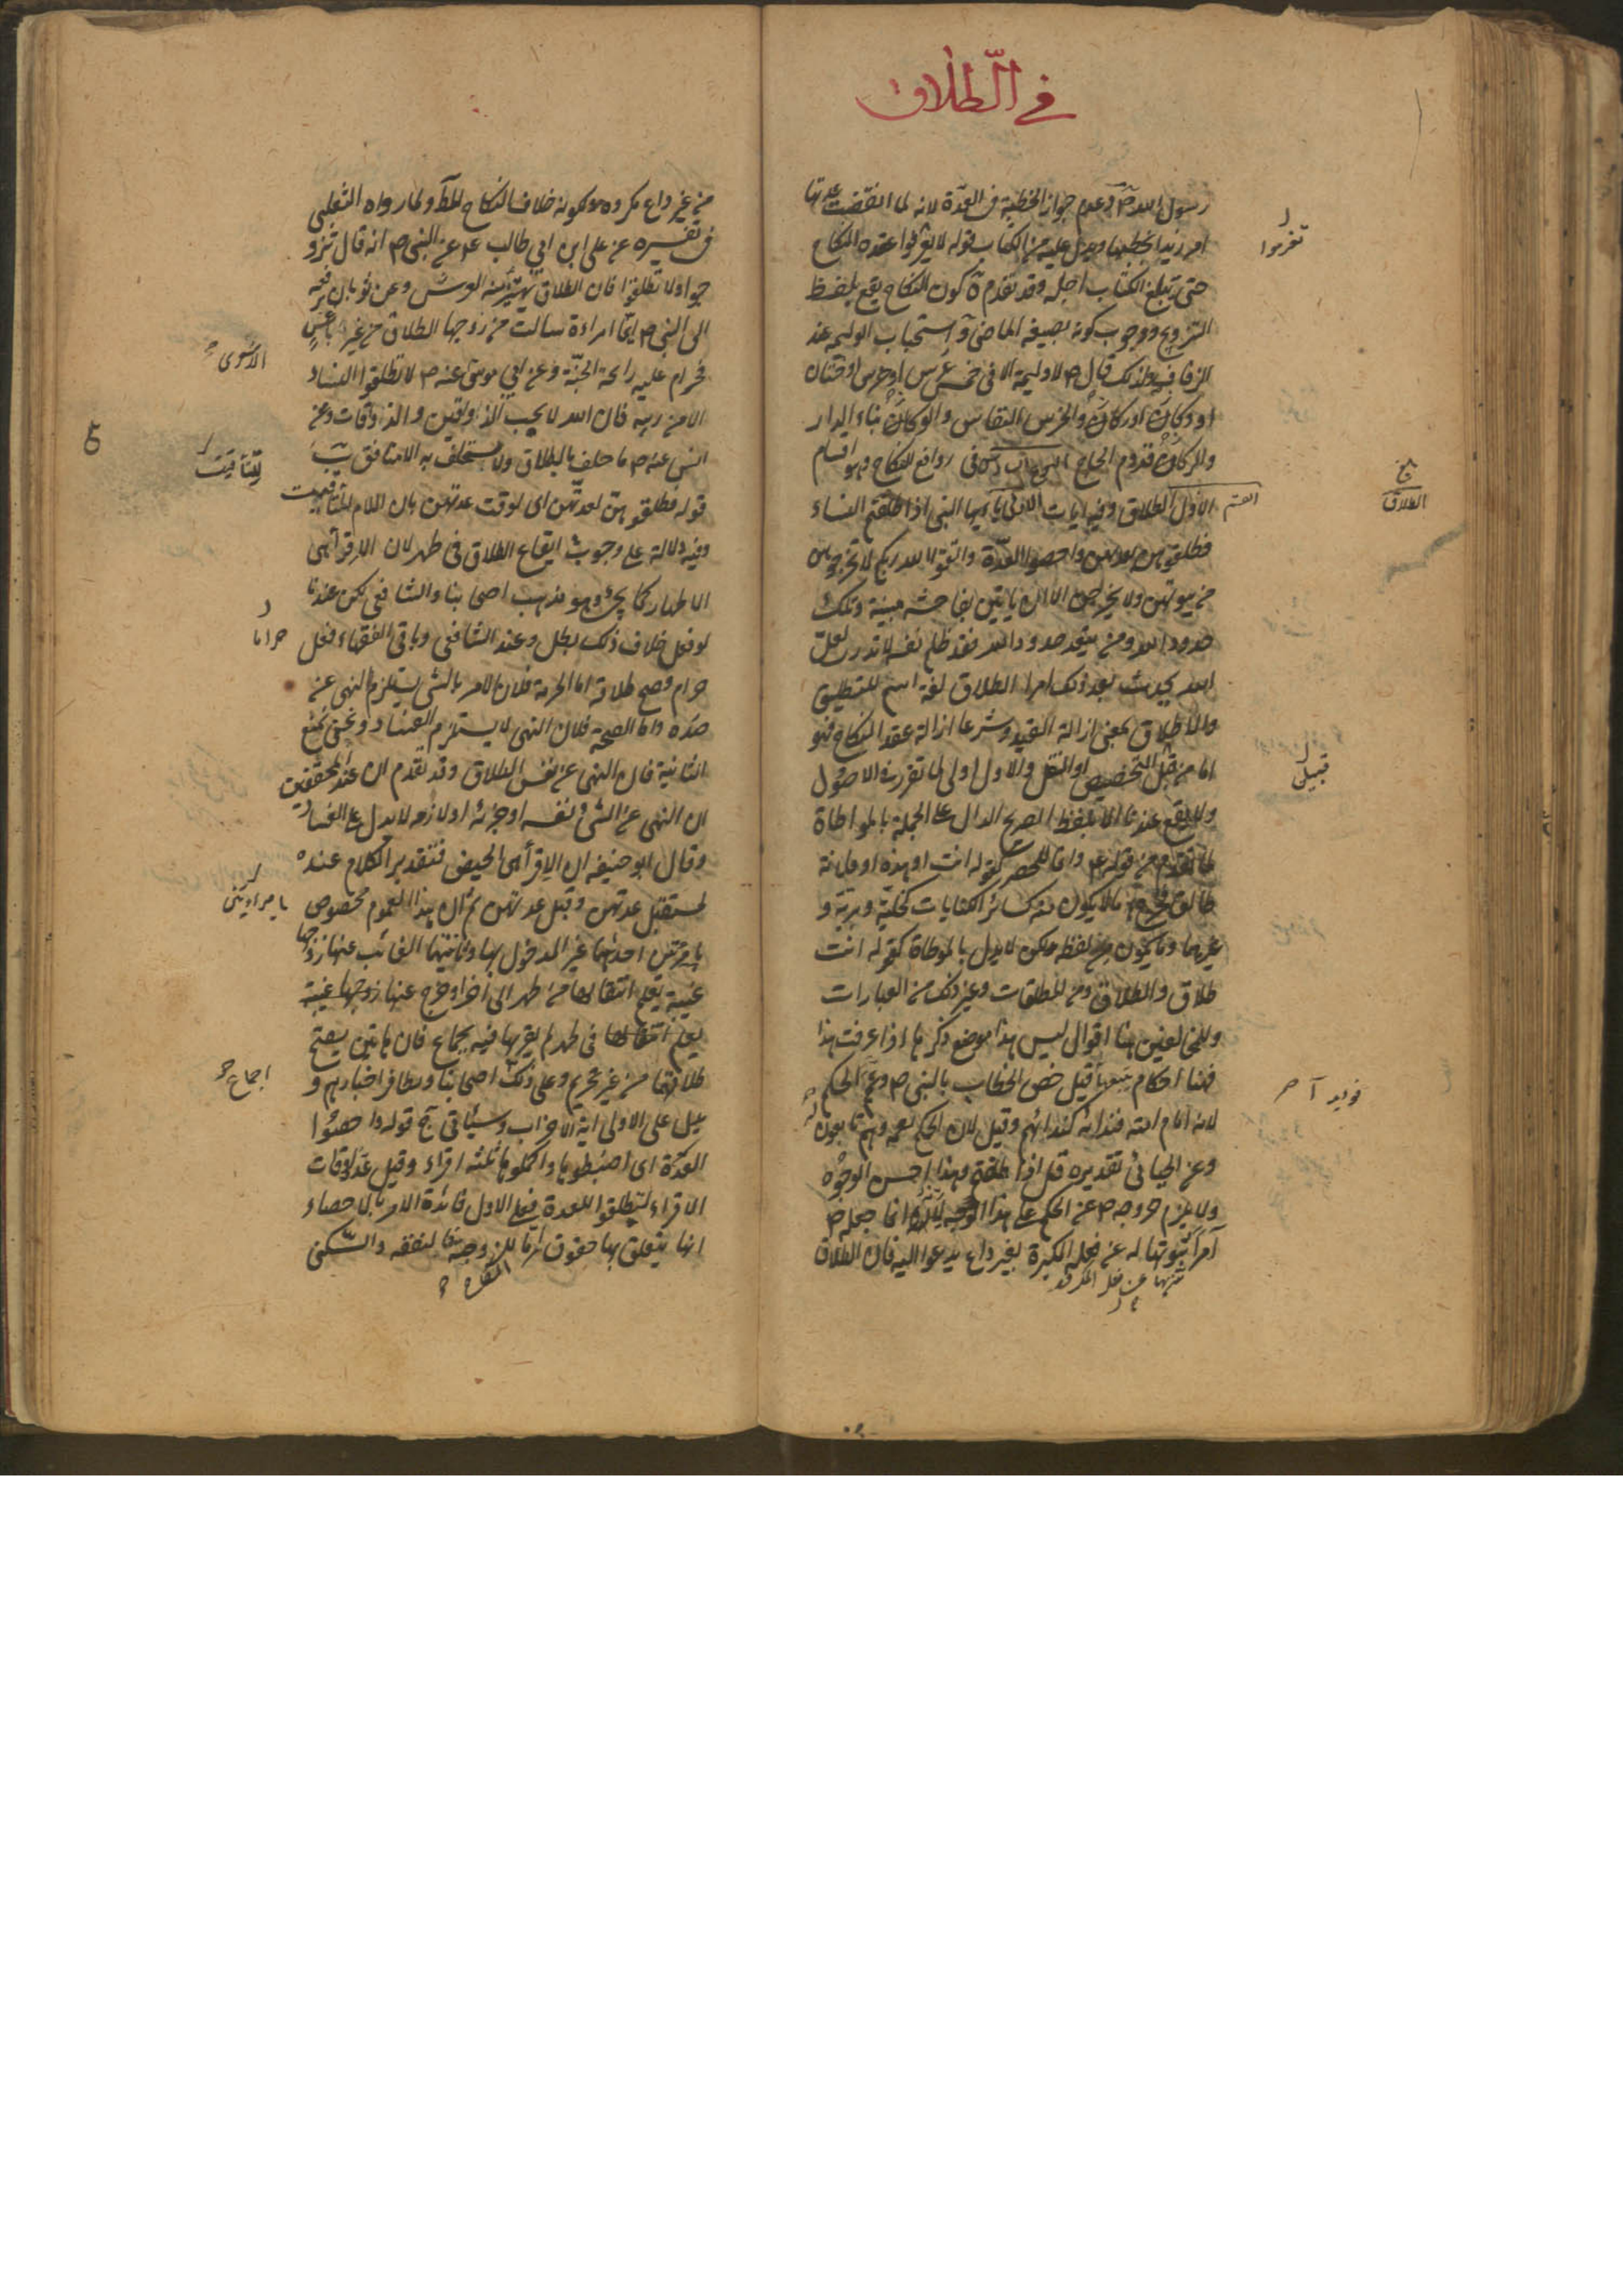 في الطلاق
رسول الله ص وعدم جواز الخطبة في العدة لانه لما انقضت عدتها
امر زيدا بخطبها ويدل عليه من الكتاب قوله لا تعزموا عقدة النكاح
حتى يبلغ الكتاب اجله وقد تقدم ة كون النكاح يقع بلفظ
التزويج ووجوب كونه بصيغه الماضي و استحباب الوليمه عند
الزفاف ولذلك قال ص لا وليمة الا في خمس عرس او خرس او ختان
او وكار او ركاز والخرس النفاس والوكار بناء الدار
والركاز قدوم الحاج في روافع النكاح وهو اقسام
القسم الاول الطلاق وفيه ايات الاولى يا ايها النبي اذا طلقتم النساء
فطلقوهن لعدتهن واحصوا العدة واتقوا الله ربكم لا تخرجوهن
من بيوتهن ولا يخرجن الا ان ياتين بفاحشة مبينة وتلك
حدود الله ومن يتعد حدود الله فقد ظلم نفسه لا تدري لعل
الله يحدث بعد ذلك امرا الطلاق لغة اسم للتطليق
والاطلاق بمعنى ازالة القيد وشرعا ازالة عقد النكاح فهو
اما من قبل التخصيص او النقل والاول اولى لما تقرر في الاصول
ولا يقع عندنا الا بلفظ الصريح الدال على الجملة بالمواطاة
لما تقدم من قوله ع وانما للحصر كقوله انت او هذه او فلانة
طالق فخرج ما لا يكون كسائر الكنايات كخلية وبرية و
غيرهما وما يكون لفظه لكن لا يدل بالموطاة كقوله انت
طلاق والطلاق ومن المطلقات وغير ذلك من العبارات
وللمخالفين هنا اقوال ليس هذا موضع ذكرها اذا عرفت هذا
فهنا احكام قيل خص الخطاب بالنبي ص وعم الحكم
لانه امام امته فنداؤه كندائهم وقيل لان الحكم يعمه وهم تابعون له
وعن الجبائي تقديره قل اذا طلقتم وهذا احسن الوجوه
ولا يلزم خروجه ص عن الحكم على هذا الوجه لانه انما جعله ص
آمرا تنويها له عن فعله المكروه لغير داع يدعوا اليه فان الطلاق
تنزيها عن فعل المكروه
تعزموا
الطلاق
قبيل
من غير داع مكروه لكونه خلاف النكاح ولما رواه الثعلبي
في تفسيره عن علي ابن ابي طالب ع عن النبي ص انه قال تزو
جوا ولا تطلقوا فان الطلاق يهتز منه العرش وعن ثوبان رفعه
الى النبي ص ايما امراءة سالت من زوجها الطلاق من غير بأس
فحرام عليه رائحة الجنة وعن ابي موسى عنه ص لا تطلقوا النساء
الا من ريبه فان الله لا يحب الذواقين والذواقات وعن
انس عنه ص ما حلف بالطلاق ولا استحلف به الا منافق
قوله فطلقوهن لعدتهن اي لوقت عدتهن بان اللام للتأقيت
وفيه دلالة على وجوب ايقاع الطلاق في طهر لان الاقراء هي
الاطهار كما يجيء وهو مذهب اصحابنا والشافعي لكن عندنا
لو فعل خلاف ذلك بطل وعند الشافعي وباقي الفقهاء فعل
حرام وصح طلاقه اما الحرمة فلان الامر بالشيء يستلزم النهي عن
ضده واما الصحة فلان النهي لا يستلزم الفساد ونحن نمنع
الثانية فان النهي عن نفس الطلاق وقد تقدم ان عند المحققين
ان النهي عن الشيء نفسه او جزئه او لازمه لا يدل على الفساد
وقال ابو حنيفه ان الاقراء هي الحيض فتقدير الكلام عنده
لمستقبل عدتهن وقبل عدتهن ثم ان هذا العموم مخصوص
بامرين احدهما غير المدخول بها وثانيتهما الغائب عنها زوجها
غيبة يعلم انتقالها من طهر الى اخر او خرج عنها زوجها غيبة
يعلم انتقالها في طهر لم يقربها فيه بجماع فان هاتين يصح
طلاقهما من غير تحريم وعلى ذلك اصحابنا وتظافر اخبارهم و
يدل على الاولى اية الاحزاب وسيأتي ج قوله واحصوا
العدة اي اضبطوها واكملوها ثلثه اقراء وقيل عدد اوقات
الاقراء لتطلقوا للعدة فعلى الاول فائدة الامر بالاحصاء
انها يتعلق بها حقوق اما للزوجة كالنفقه والسكنى
الاشعري
للتأقيت
حراما
بامرادين
اجماع